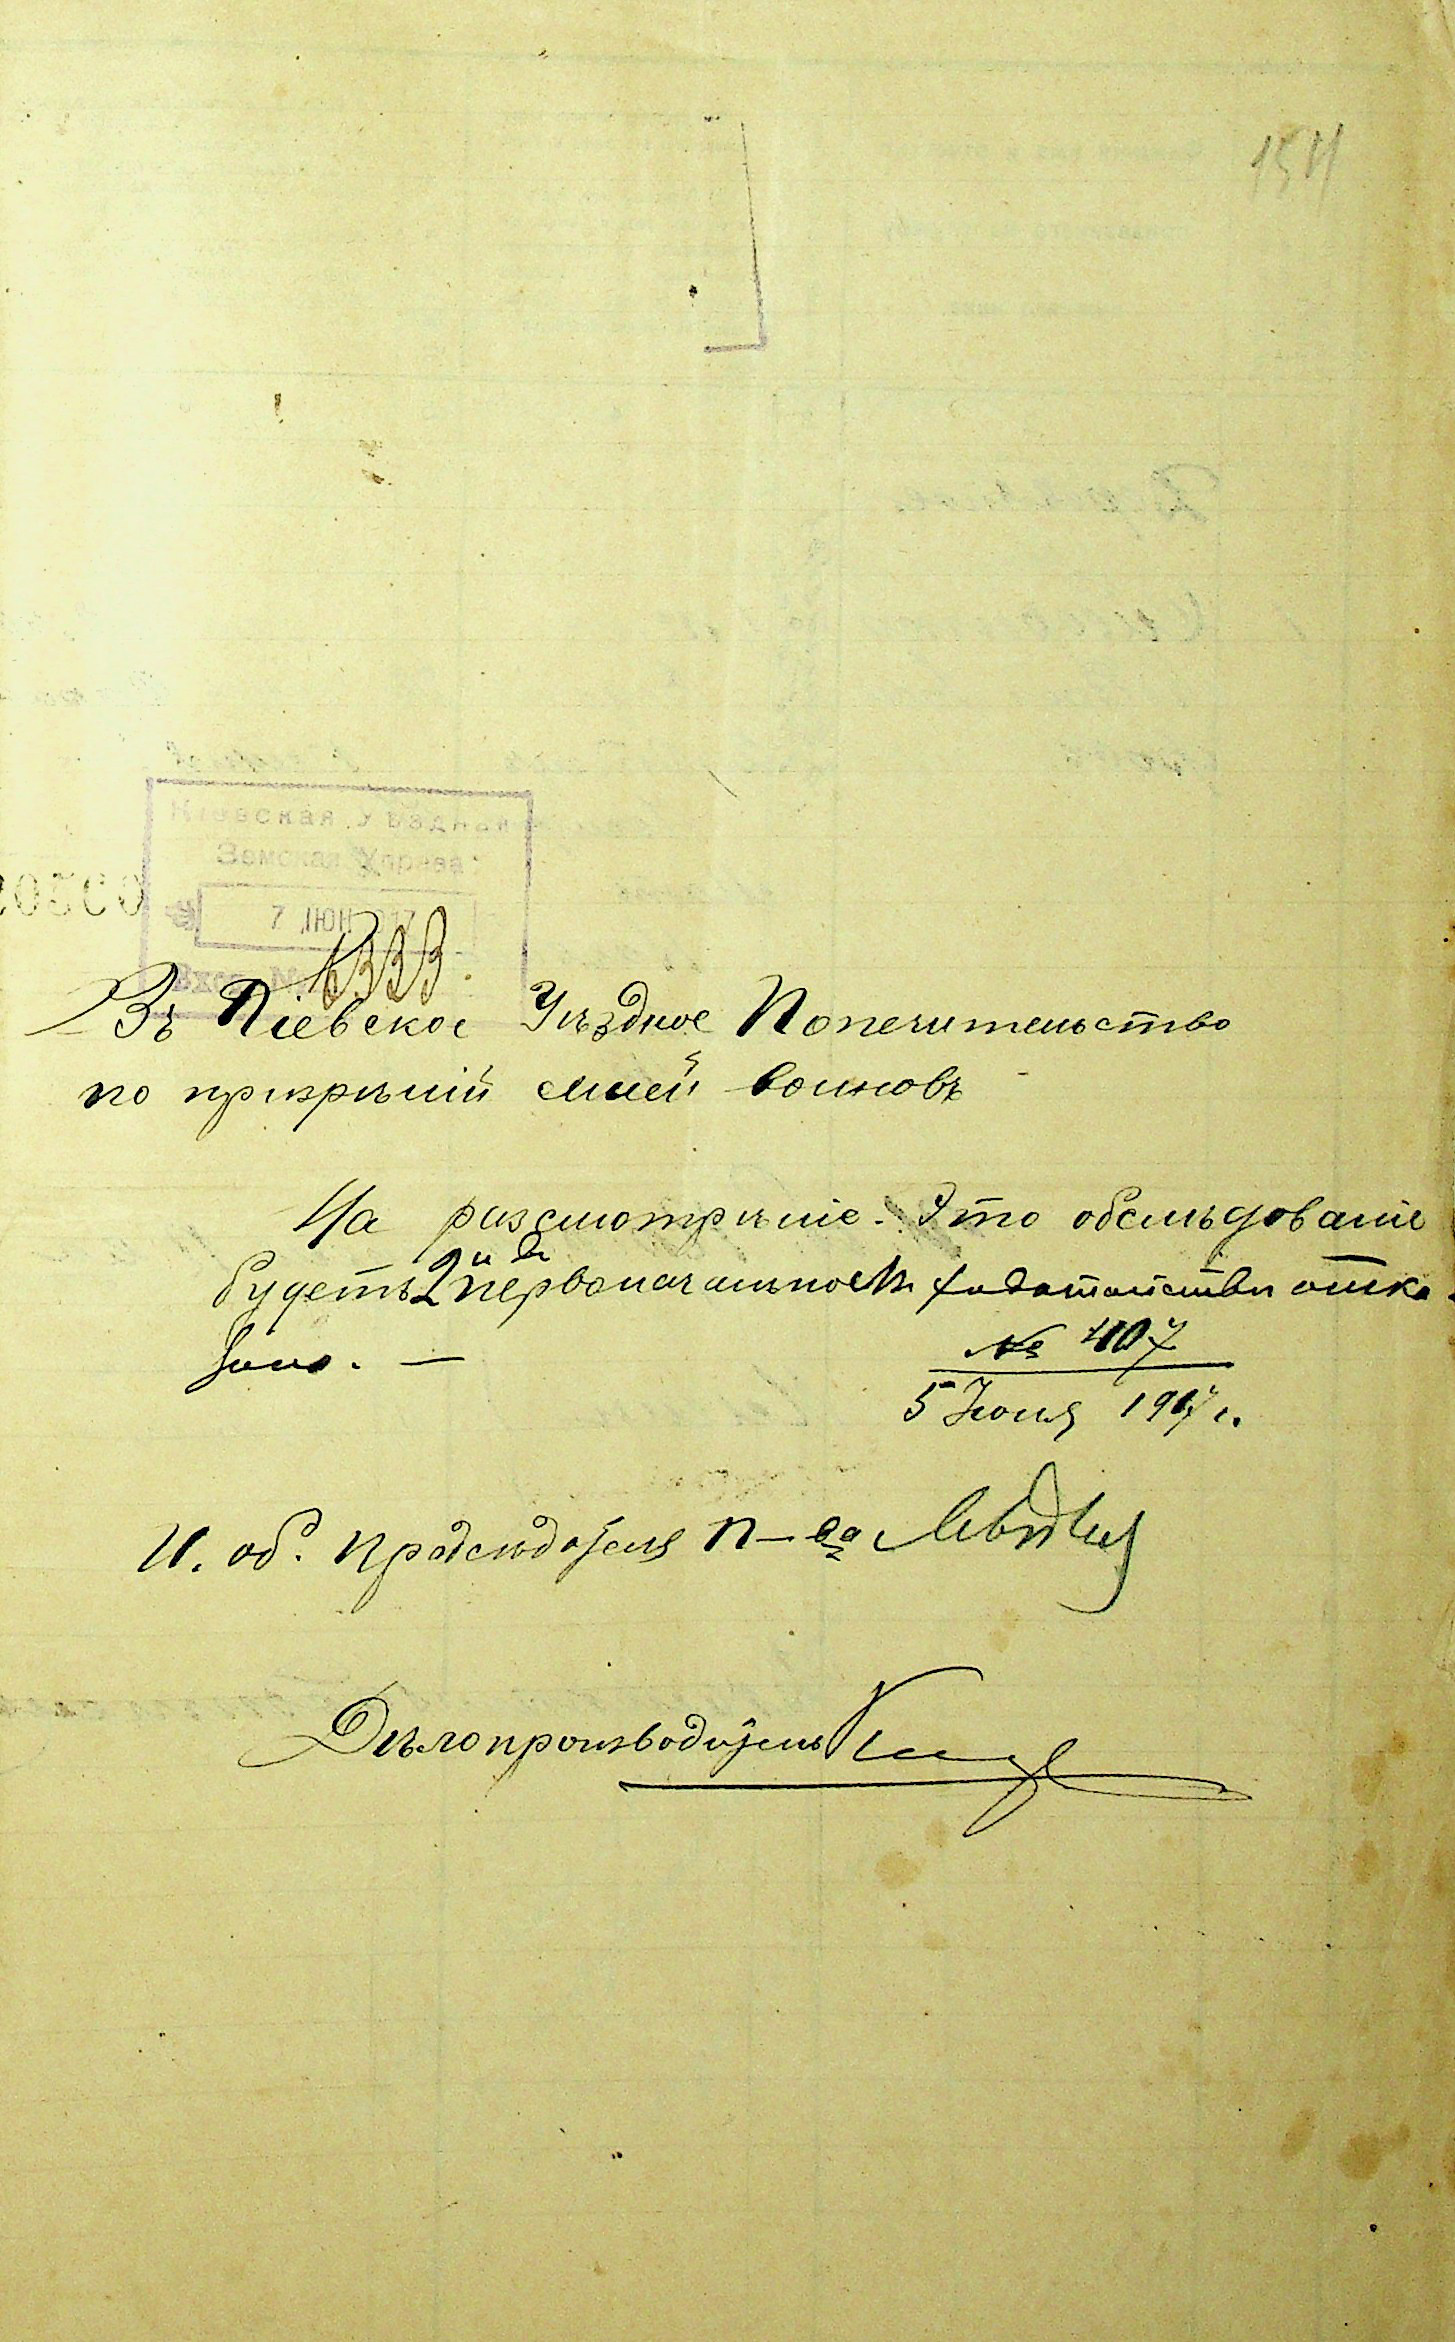 154
Кіевская Уѣздная
Земская Управа
7 ІЮН 1917
Вход. №
6333
Въ Кіевское Уѣздное Попечительство
по призрѣнію семей воиновъ
На разсмотрѣніе. Это обслѣдованіе
будетъ 2ое первоначальное ходатайство отка
зано. —
№ 407
5 Іюня 1917 г.
И. об. Предсѣдателя П-ва
Дѣлопроизводитель